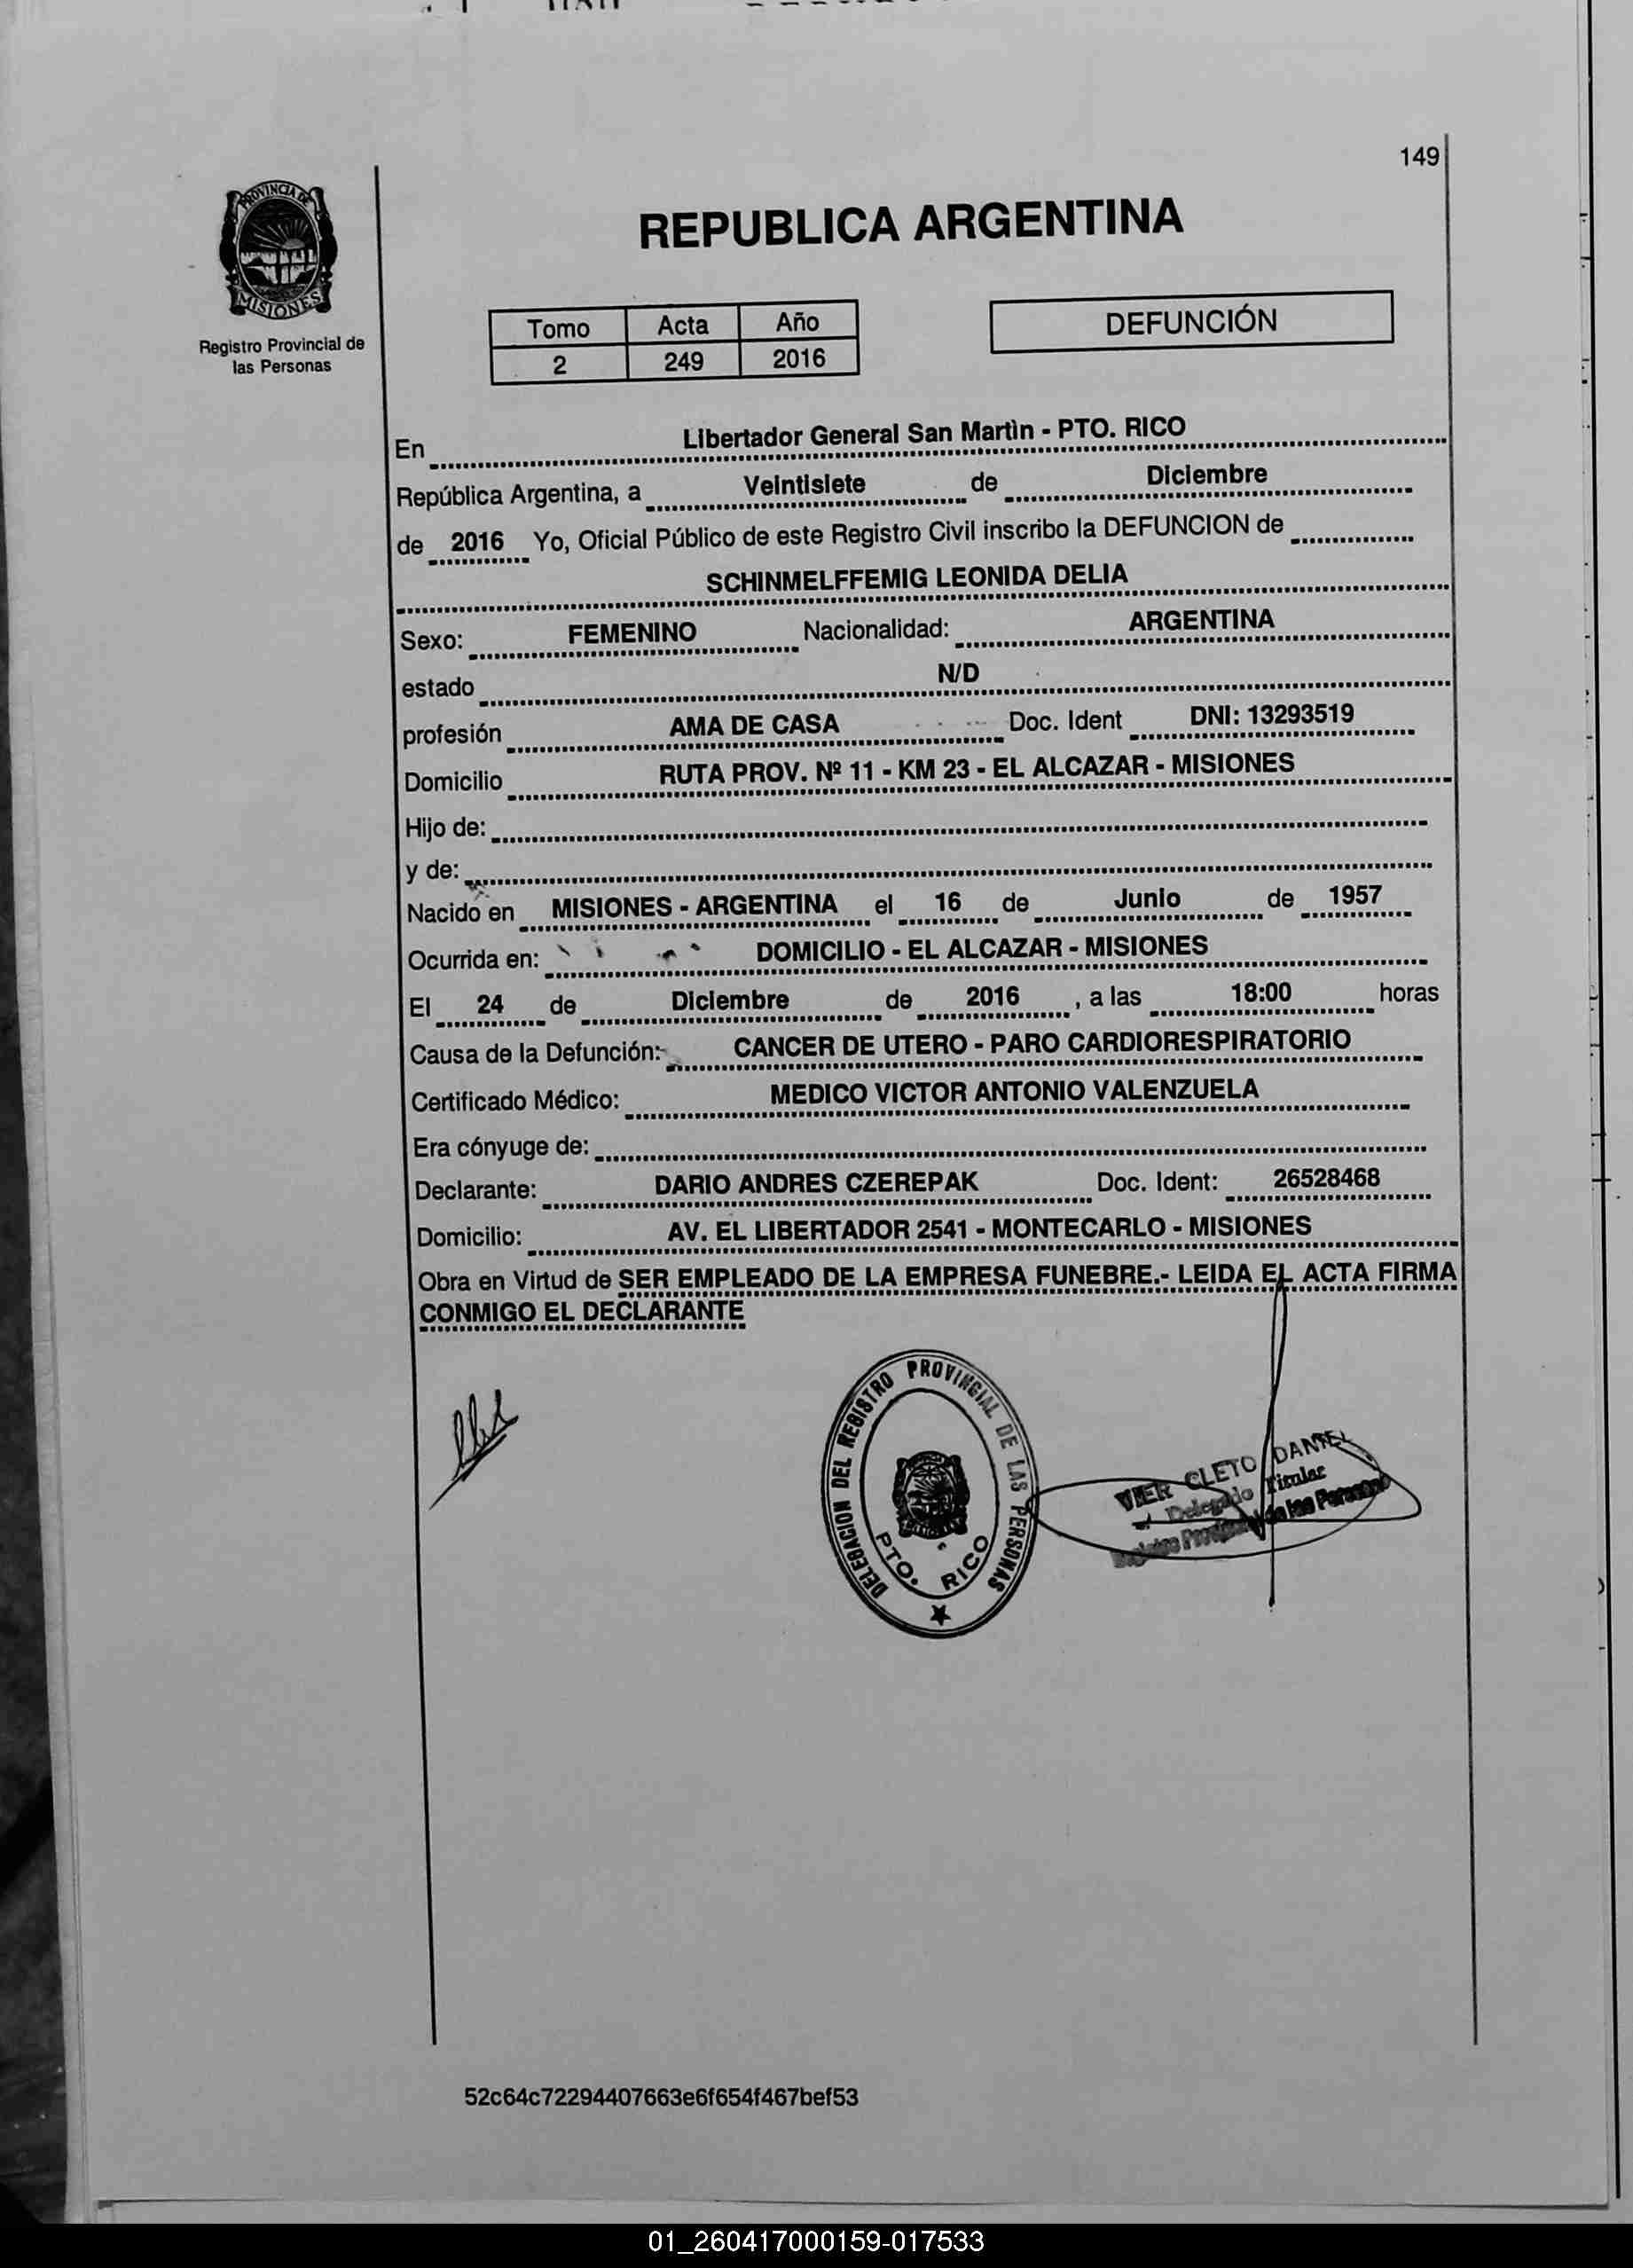 149
PROVINCIA DE
MISIONES
Registro Provincial de
las Personas
REPUBLICA ARGENTINA
Tomo Acta Año
2 249 2016
DEFUNCIÓN
En Libertador General San Martìn - PTO. RICO
República Argentina, a Veintisiete de Diciembre
de 2016 Yo, Oficial Público de este Registro Civil inscribo la DEFUNCION de
SCHINMELFFEMIG LEONIDA DELIA
Sexo: FEMENINO Nacionalidad: ARGENTINA
estado N/D
profesión AMA DE CASA Doc. Ident DNI: 13293519
Domicilio RUTA PROV. Nº 11 - KM 23 - EL ALCAZAR - MISIONES
Hijo de:
y de:
Nacido en MISIONES - ARGENTINA el 16 de Junio de 1957
Ocurrida en: DOMICILIO - EL ALCAZAR - MISIONES
El 24 de Diciembre de 2016 , a las 18:00 horas
Causa de la Defunción: CANCER DE UTERO - PARO CARDIORESPIRATORIO
Certificado Médico: MEDICO VICTOR ANTONIO VALENZUELA
Era cónyuge de:
Declarante: DARIO ANDRES CZEREPAK Doc. Ident: 26528468
Domicilio: AV. EL LIBERTADOR 2541 - MONTECARLO - MISIONES
Obra en Virtud de SER EMPLEADO DE LA EMPRESA FUNEBRE.- LEIDA EL ACTA FIRMA
CONMIGO EL DECLARANTE
DELEGACION DEL REGISTRO PROVINCIAL DE LAS PERSONAS
PTO. RICO
VIER CLETO DANIEL
Delegado Titular
Registro Provincial de las Personas
52c64c72294407663e6f654f467bef53
01_260417000159-017533